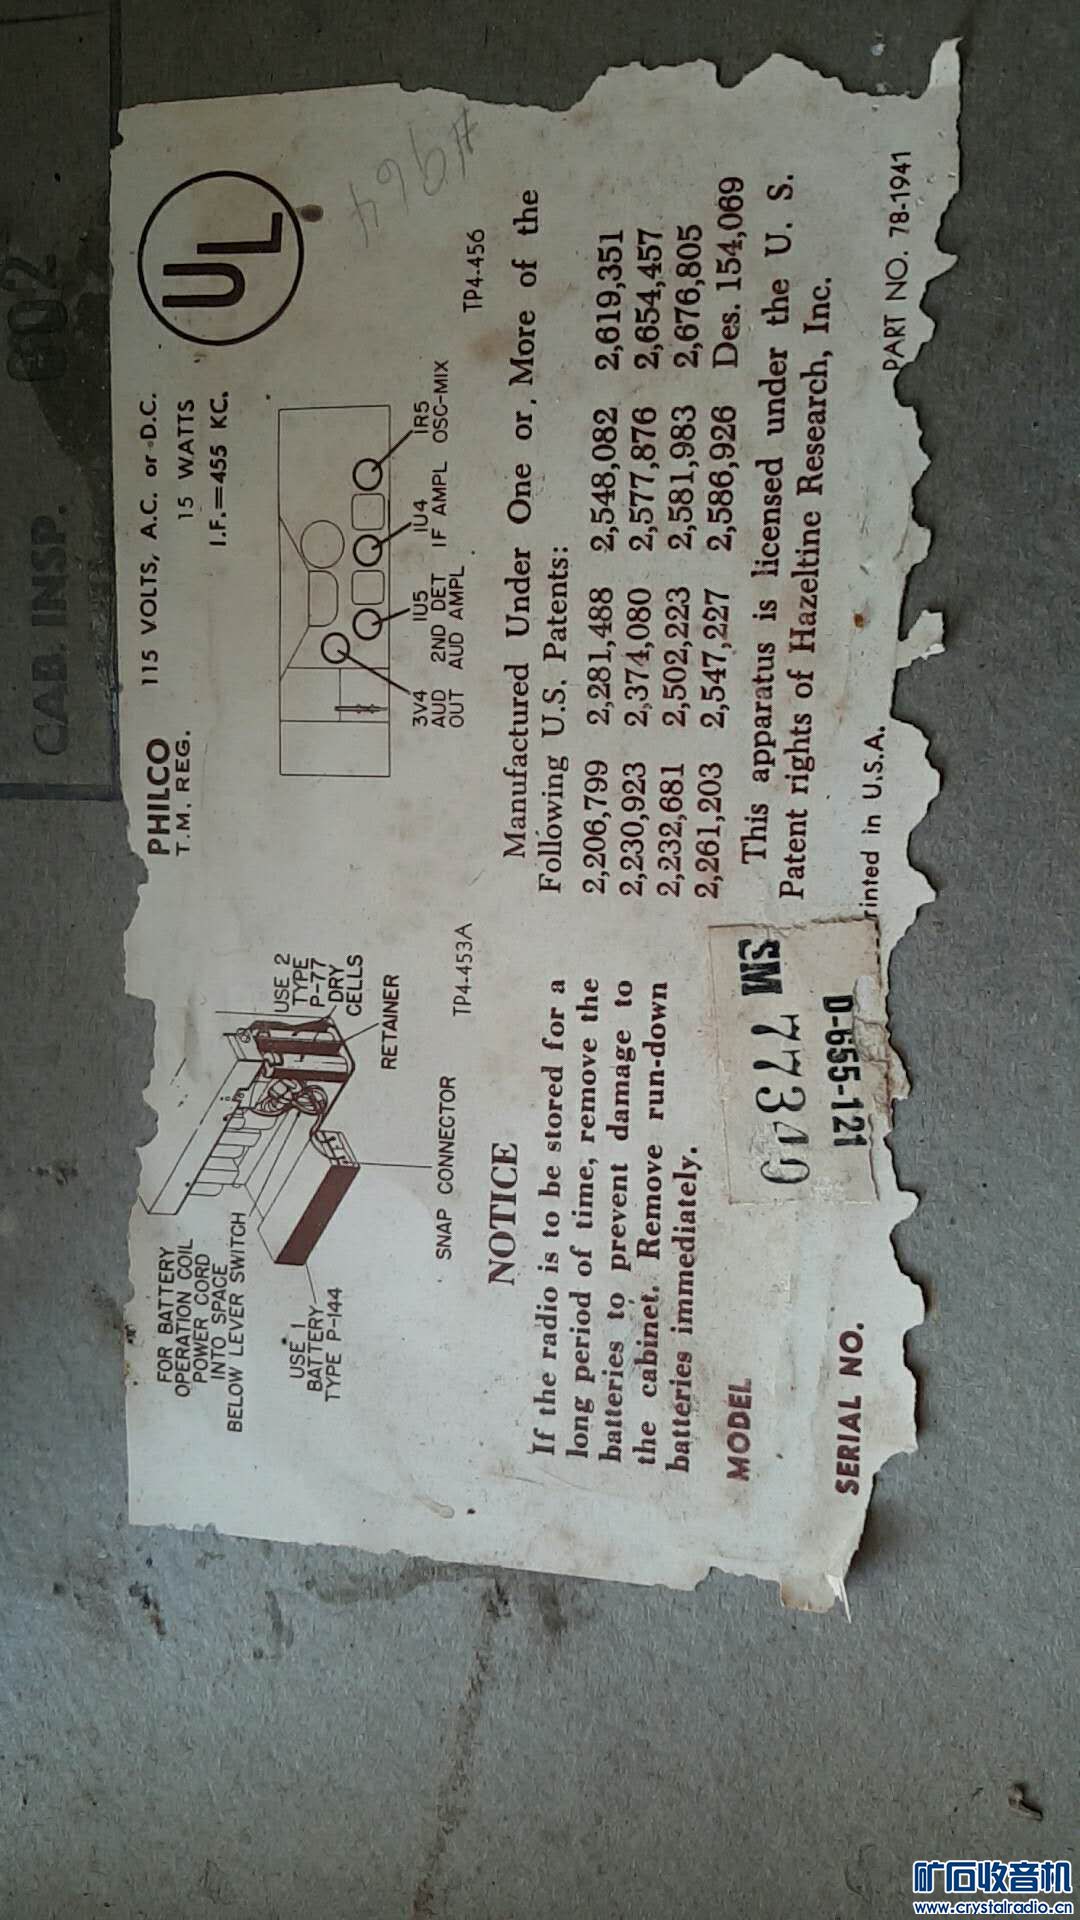 CAB. INSP.
002
FOR BATTERY
OPERATION COIL
POWER CORD
INTO SPACE
BELOW LEVER SWITCH
USE 2
TYPE
P-77
DRY
CELLS
RETAINER
USE 1
BATTERY
TYPE P-144
SNAP CONNECTOR
TP4-453A
NOTICE
If the radio is to be stored for a
long period of time, remove the
batteries to prevent damage to
the cabinet. Remove run-down
batteries immediately.
MODEL
SERIAL NO.
SM
D-655-121
PHILCO
T.M. REG.
115 VOLTS, A.C. or D.C.
15 WATTS
I.F.=455 KC.
UL
3V4
AUD
OUT
1U5
2ND DET
AUD AMPL
1U4
IF AMPL
1R5
OSC-MIX
TP4-456
Manufactured Under One or More of the
Following U.S. Patents:
2,206,799 2,281,488 2,548,082 2,619,351
2,230,923 2,374,080 2,577,876 2,654,457
2,232,681 2,502,223 2,581,983 2,676,805
2,261,203 2,547,227 2,586,926 Des. 154,069
This apparatus is licensed under the U. S.
Patent rights of Hazeltine Research, Inc.
rinted in U.S.A.
PART NO. 78-1941
矿石收音机
www.crystalradio.cn